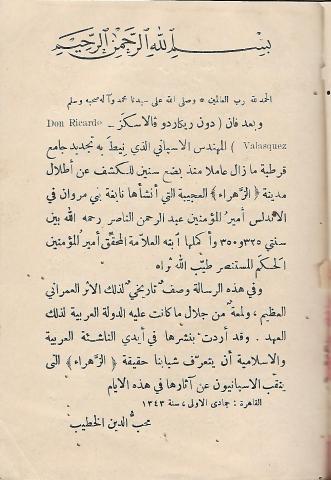 بسم الله الرحمن الرحيم
الحمد لله رب العالمين * وصلى الله على سيدنا محمد وآله وصحبه وسلم
وبعد فان ( دون ريكاردو ڤالاسكز ـ Don Ricardo
Valasquez ) المهندس الاسباني الذي نيط به تجديد جامع
قرطبة ما زال عاملا منذ بضع سنين للكشف عن أطلال
مدينة ﴿ الزهراء ﴾ العجيبة التي أنشأها نابغة بني مروان في
الاندلس أميرُ المؤمنين عبد الرحمن الناصر رحمه الله بين
سنتي ٣٢٥ و ٣٥٠ وأكملها ابنه العلامة المحقق أمير المؤمنين
الحكم المستنصر طيّب الله ثراه
وفي هذه الرسالة وصفٌ تاريخيٌ لذلك الاثر العمراني
العظيم ، ولمحةٌ من جلال ما كانت عليه الدولة العربية لذلك
العهد . وقد أردت بنشرها في أيدي الناشئة العربية
والاسلامية أن يتعرّف شبابنا حقيقة ﴿ الزهراء ﴾ التى
ينقب الاسبانيون عن آثارها في هذه الايام
القاهرة : جمادى الاولى ، سنة ١٣٤٣
محب الدين الخطيب